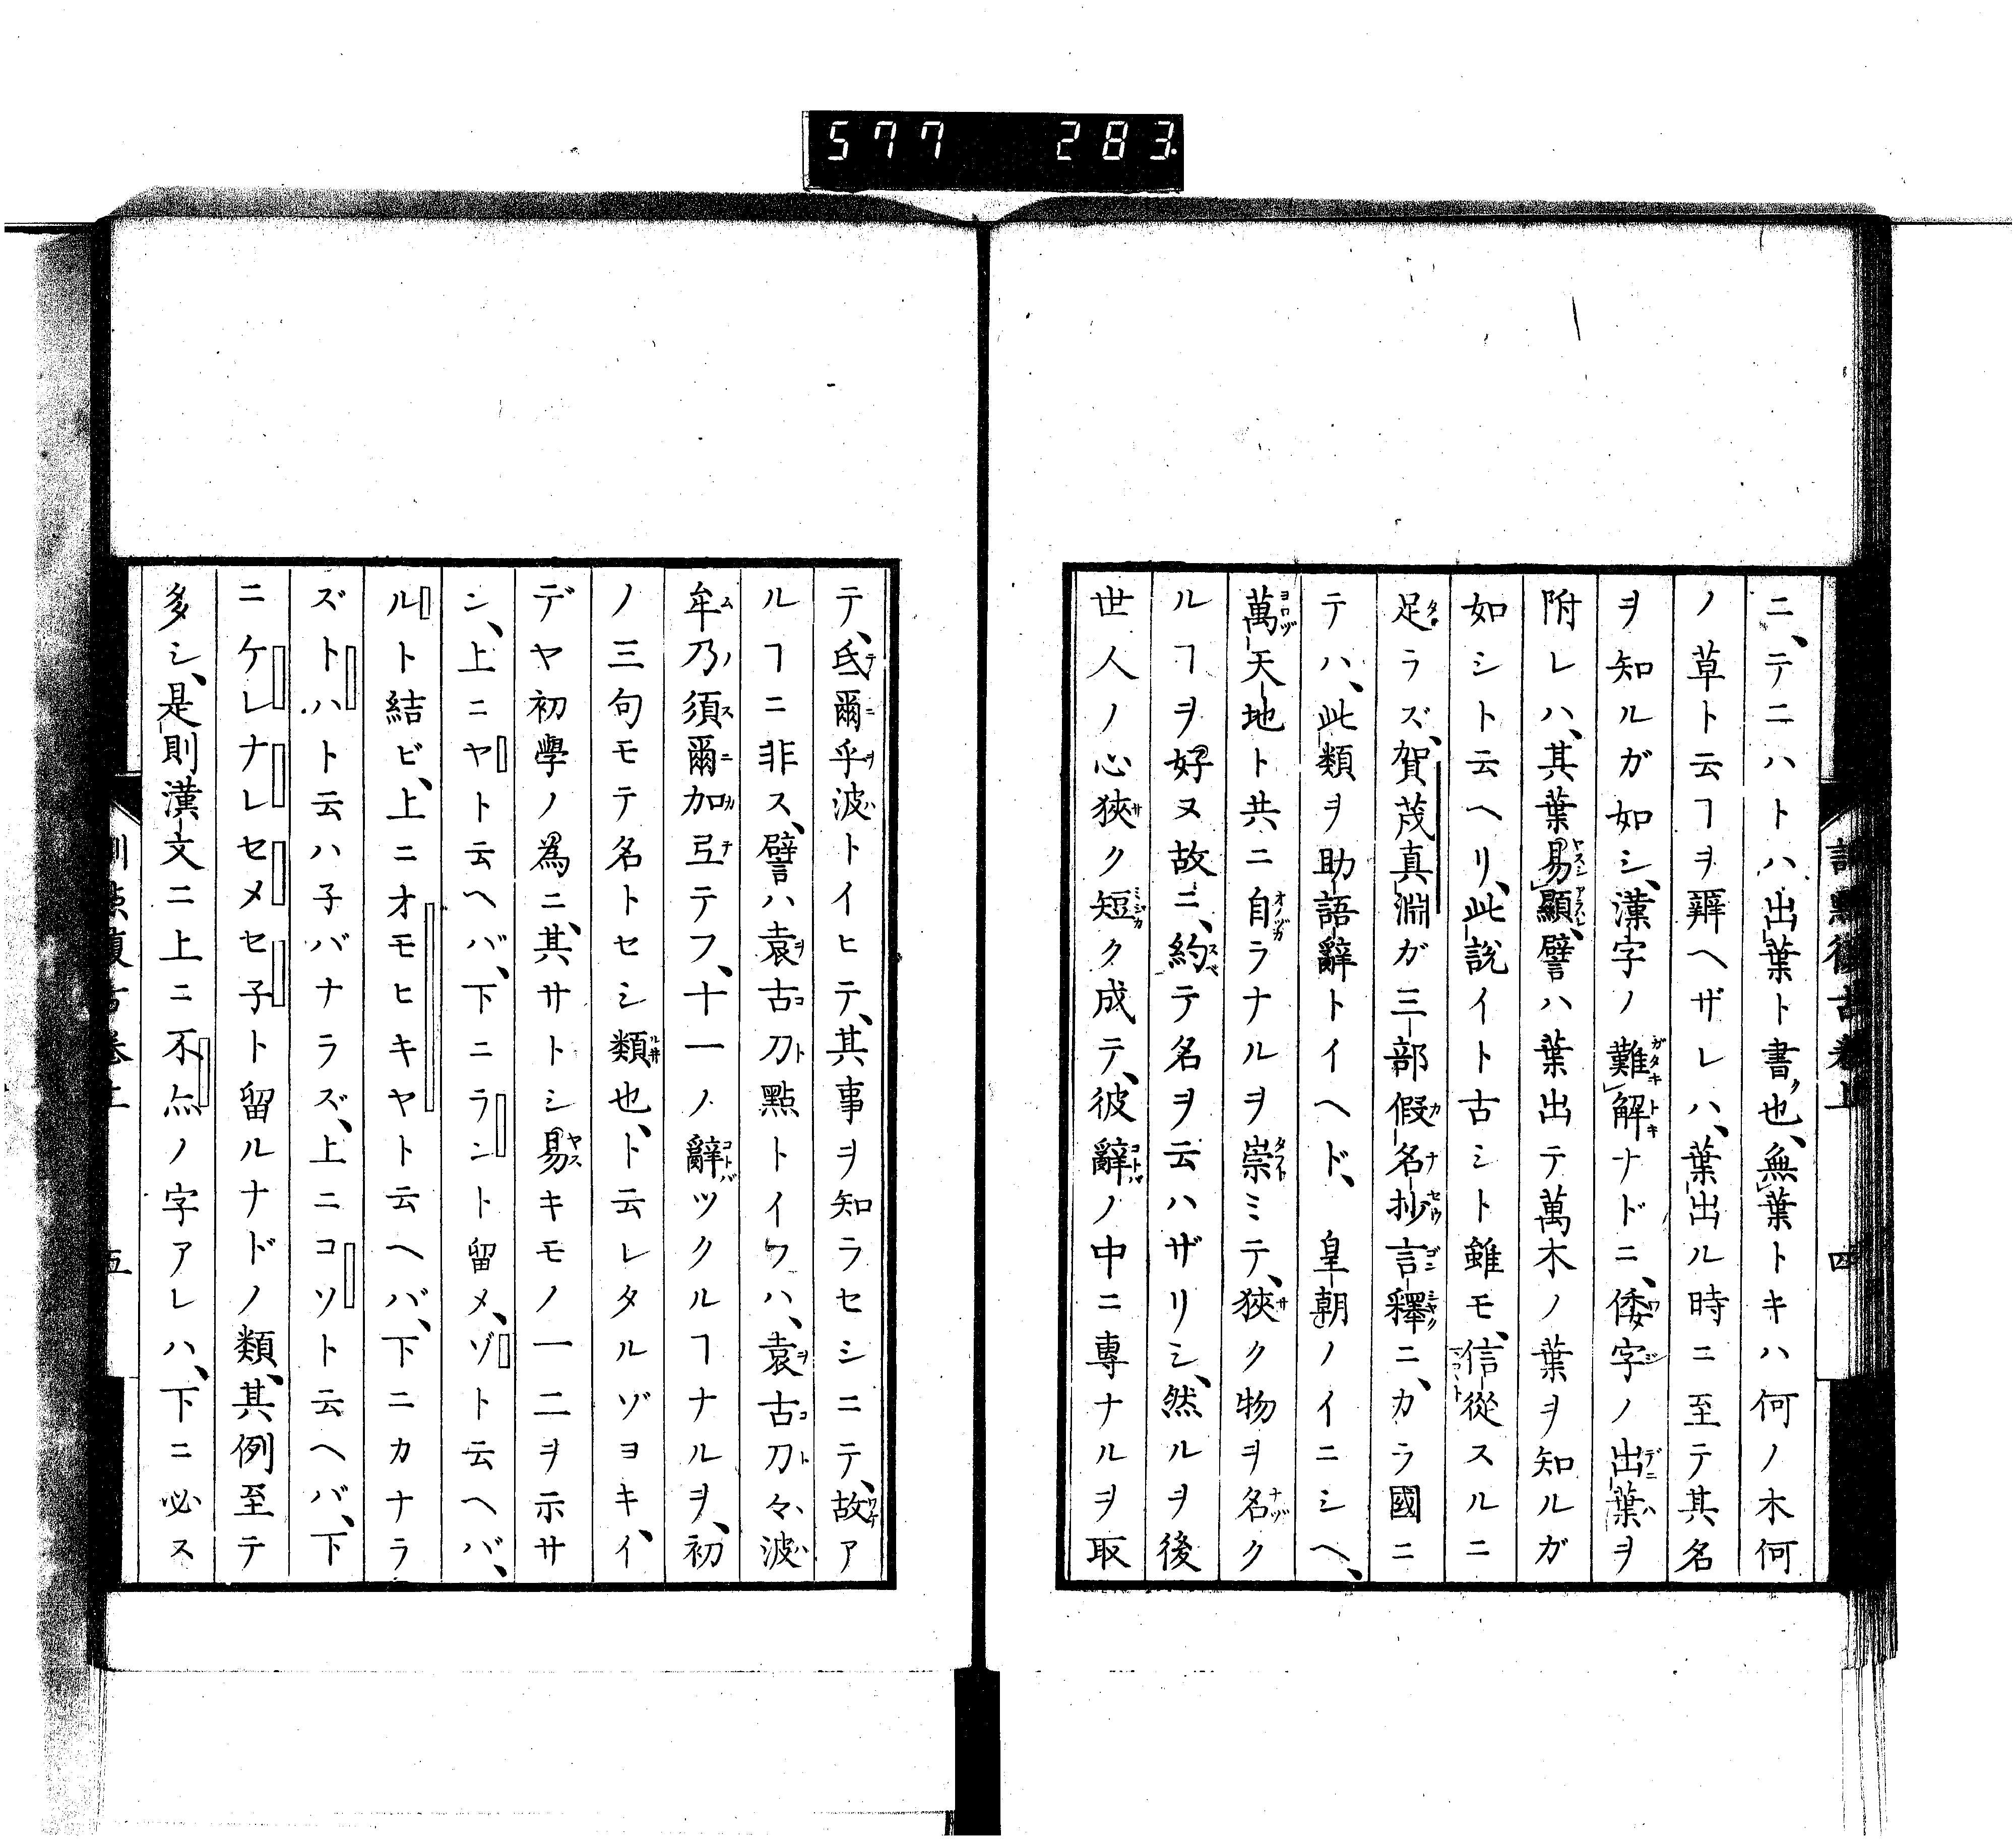 577 283
ニ、テニハトハ出葉ト書也、無葉トキハ何ノ木何
ノ草ト云ヿヲ辨ヘザレハ、葉出ル時ニ至テ其名
ヲ知ルガ如シ、漢字ノ難解ナドニ、倭字ノ出葉ヲ
附レハ、其葉易顯、譬ハ葉出テ萬木ノ葉ヲ知ルガ
如シト云ヘリ、此説イト古シト雖モ、信從スルニ
足ラズ、賀茂真淵ガ三部假名抄言釋ニ、カラ國ニ
テハ、此類ヲ助語辭トイヘド、皇朝ノイニシヘ、
萬天地ト共ニ自ラナルヲ崇ミテ、狹ク物ヲ名ク
ルヿヲ好ヌ故ニ、約テ名ヲ云ハザリシ、然ルヲ後
世人ノ心狹ク短ク成テ、彼辭ノ中ニ專ナルヲ取
テ、氐爾乎波トイヒテ、其事ヲ知ラセシニテ、故ア
ルヿニ非ス、譬ハ袁古刀點トイフハ、袁古刀々波
牟乃須爾加弖テフ、十一ノ辭ツクルヿナルヲ、初
ノ三句モテ名トセシ類也、ト云レタルゾヨキ、イ
デヤ初學ノ為ニ、其サトシ易キモノ一二ヲ示サ
ン、上ニヤト云ヘバ、下ニラント留メ、ゾト云ヘバ、
ルト結ビ、上ニオモヒキヤト云ヘバ、下ニカナラ
ズトハト云ハ子バナラズ、上ニコソト云ヘバ、下
ニケレナレセメセ子ト留ルナドノ類、其例至テ
多シ、是則漢文ニ上ニ不𣥂ノ字アレハ、下ニ必ス